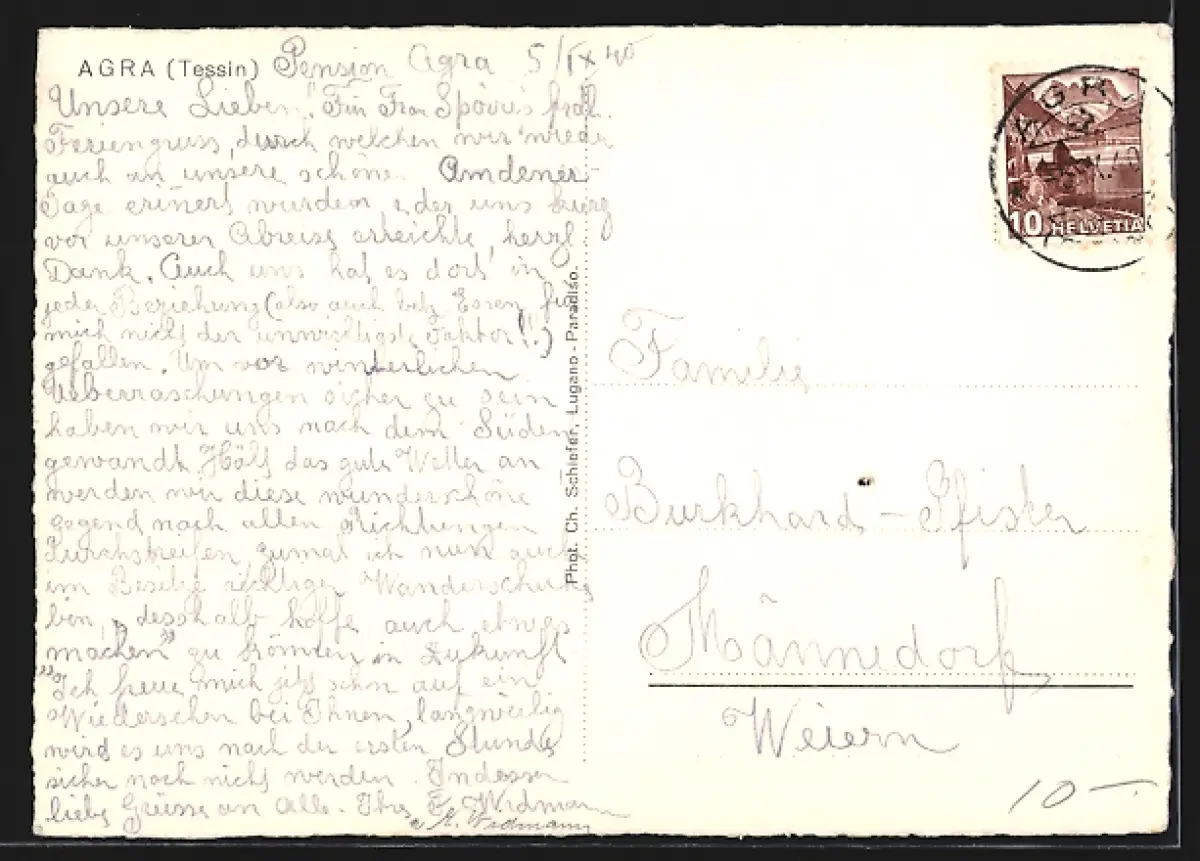 AGRA (Tessin) Pension Agra 5/IX 40
Unsere Lieben! Für Frau Spörri's fröhl.
Feriengruss, durch welchen wir wieder
auch an unsere schöne Amdener-
Tage erinert wurden & der uns kurz
vor unserer Abreise erreichte, herzl.
Dank. Auch uns hat es dort in
jeder Beziehung (also auch betr. Essen, für
mich nicht der unwichtigste Faktor!!)
gefallen. Um vor winterlichen
Ueberraschungen sicher zu sein
haben wir uns nach dem Süden
gewandt. Hält das gute Wetter an
werden wir diese wunderschöne
gegend nach allen Richtungen
Durchstreifen, zumal ich nun auch
im Besitze richtiger Wanderschuhe
bin, desshalb hoffe auch etwas
machen" zu können in Zukunft
Ich freue mich jetzt schon auf ein
Wiedersehen bei Ihnen, langweilig
wird es uns nach der ersten Stunde
sicher noch nicht werden. Indessen
liebe Grüsse an Alle. Ihre E. Widmann
& H. Widmann
Phot. Ch. Schiefer, Lugano - Paradiso.
10 HELVETIA
AGRA
Familie
Burkhard - Pfister
Männedorf
Weiern
10 -